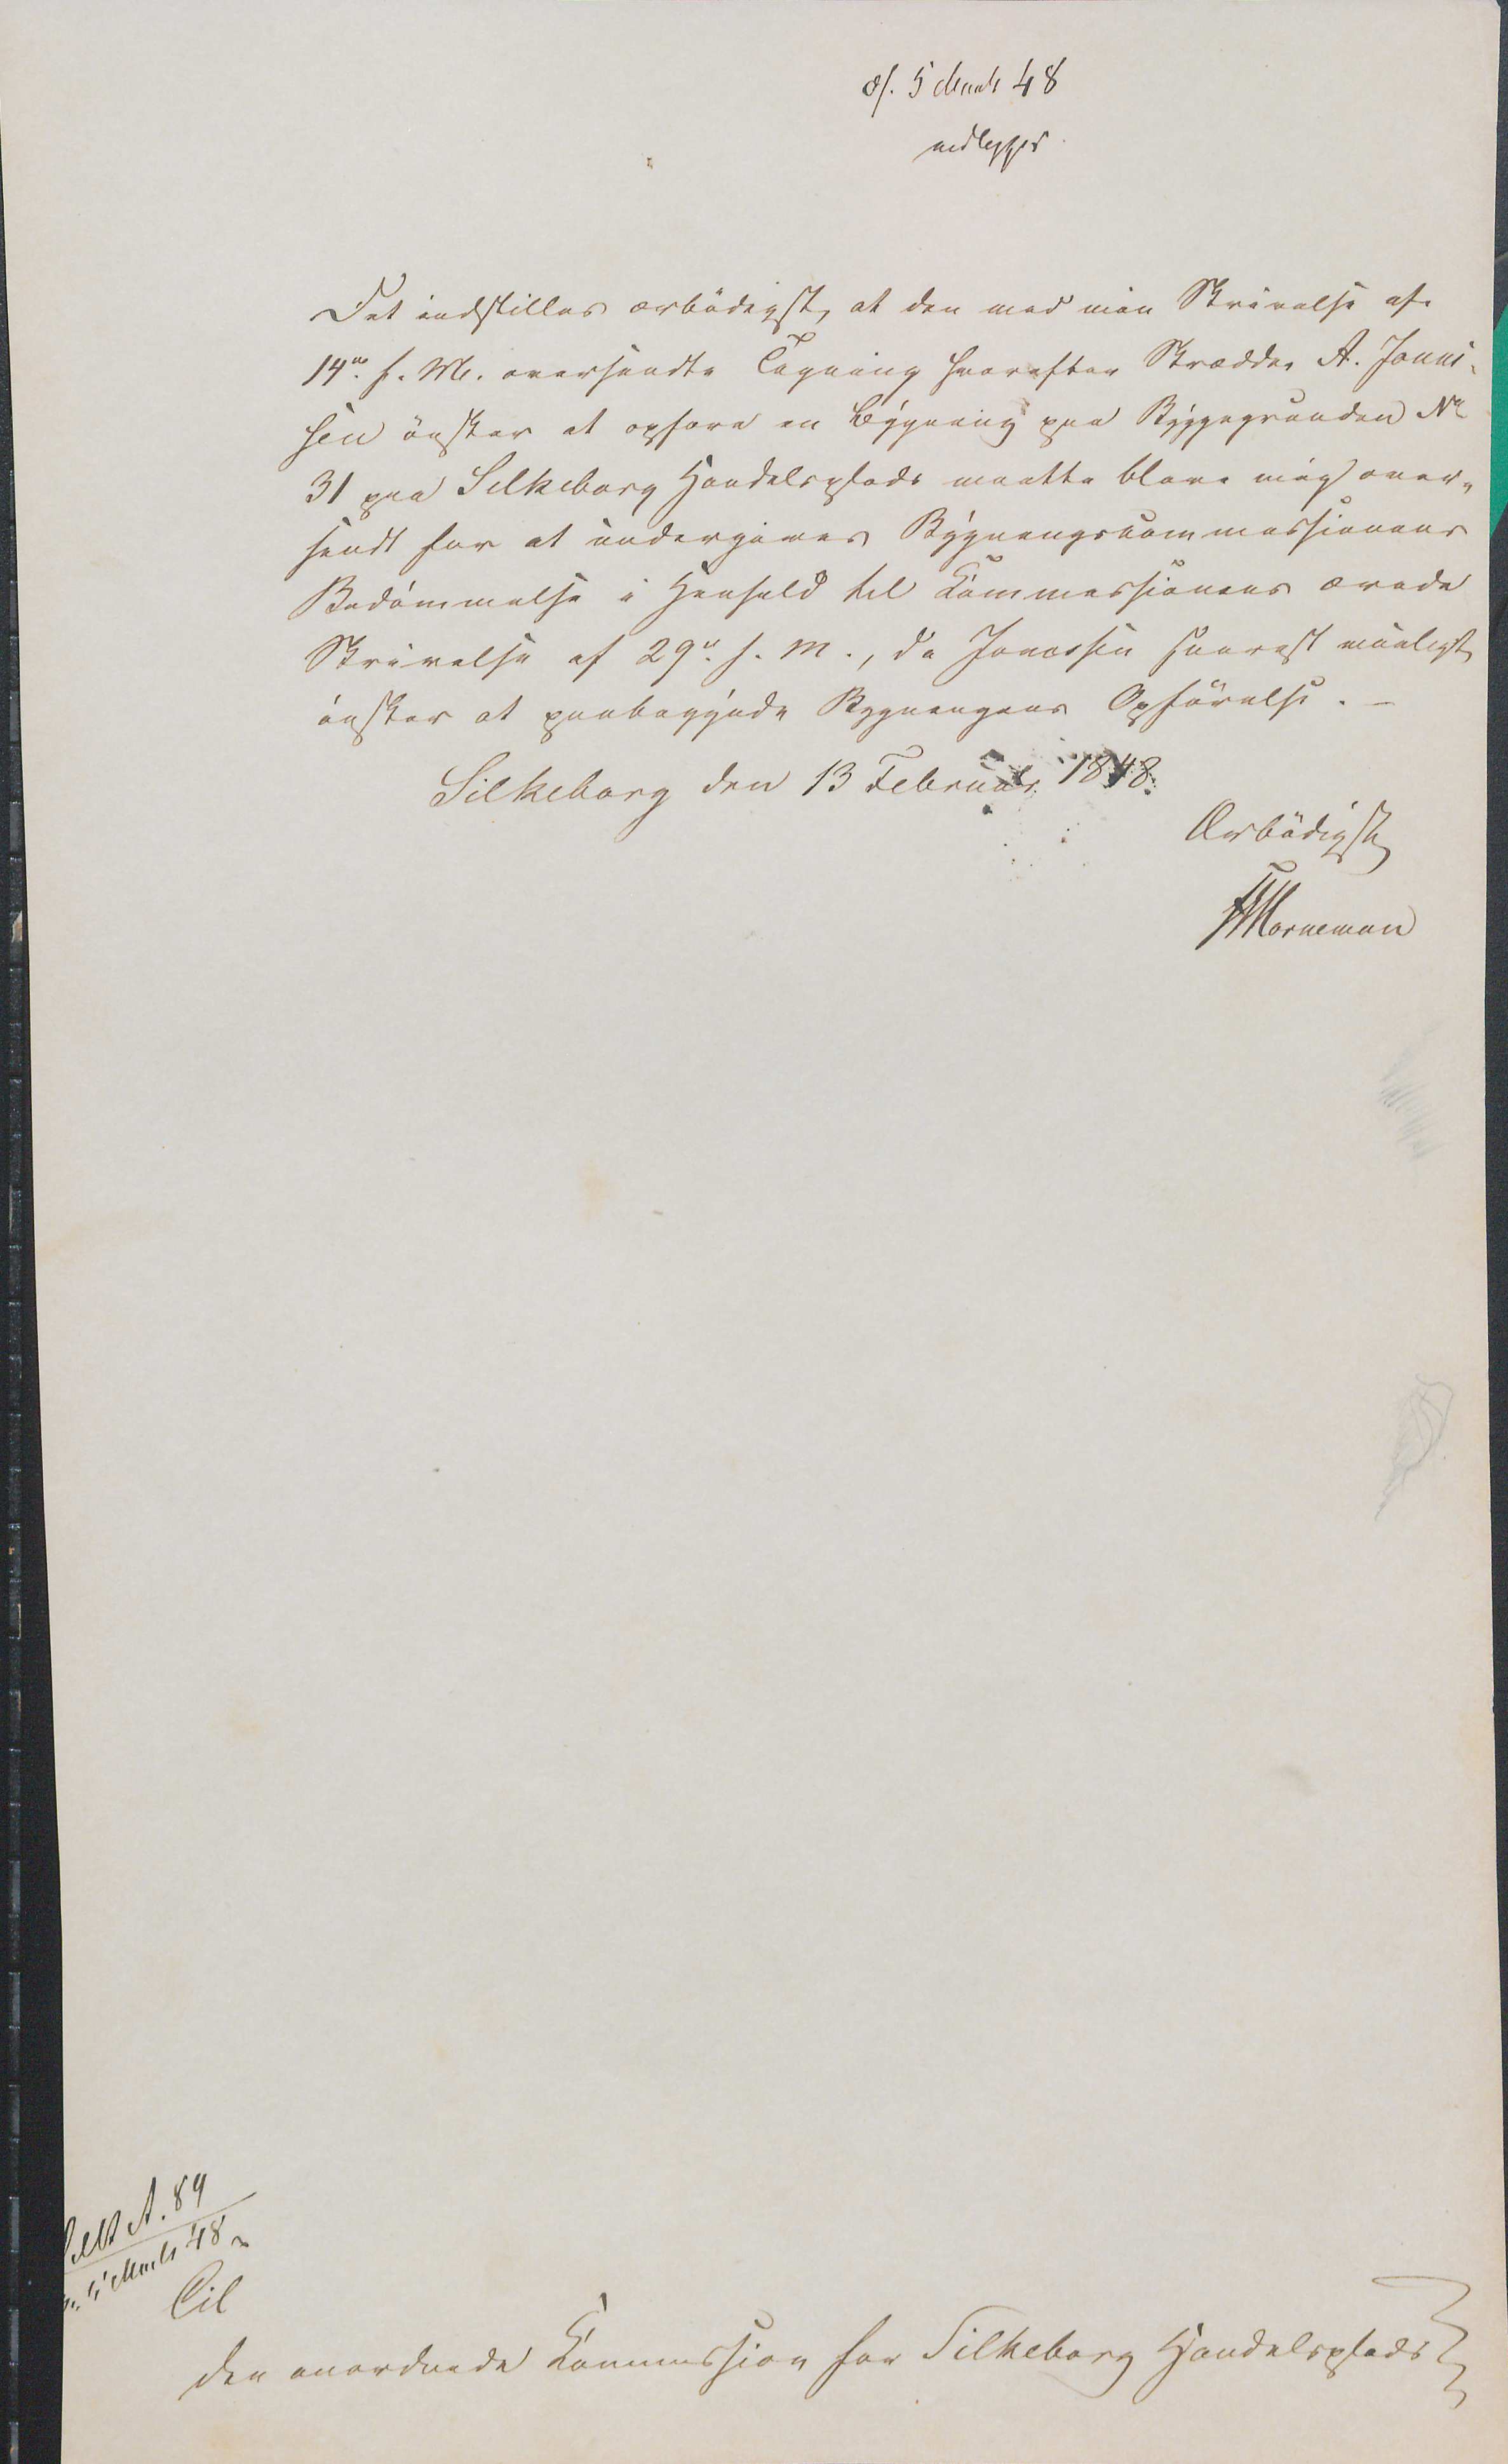 d. 5 Marts 48
nedlægges
Det indstilles ærbødigst, at den med min Skrivelse af
14de f. M. oversendte Tegning hvorefter Skrædder A. Jonas-
sen ønsker at opføre en Bygning paa Byggegrunden No
31 paa Silkeborg Handelsplads maatte blive mig over-
sendt for at undergives Bygningskommissionens
Bedömmelse i Henhold til Kommissionens ærede
Skrivelse af 29de f. M., da Jonassen snarest mueligt
ønsker at paabegynde Bygningens Opførelse. –
Silkeborg den 13 Februar 1848.
Ærbødigst
Hornemann
A. 89
5 Marts 48
Til
den anordnede Kommission for Silkeborg Handelsplads